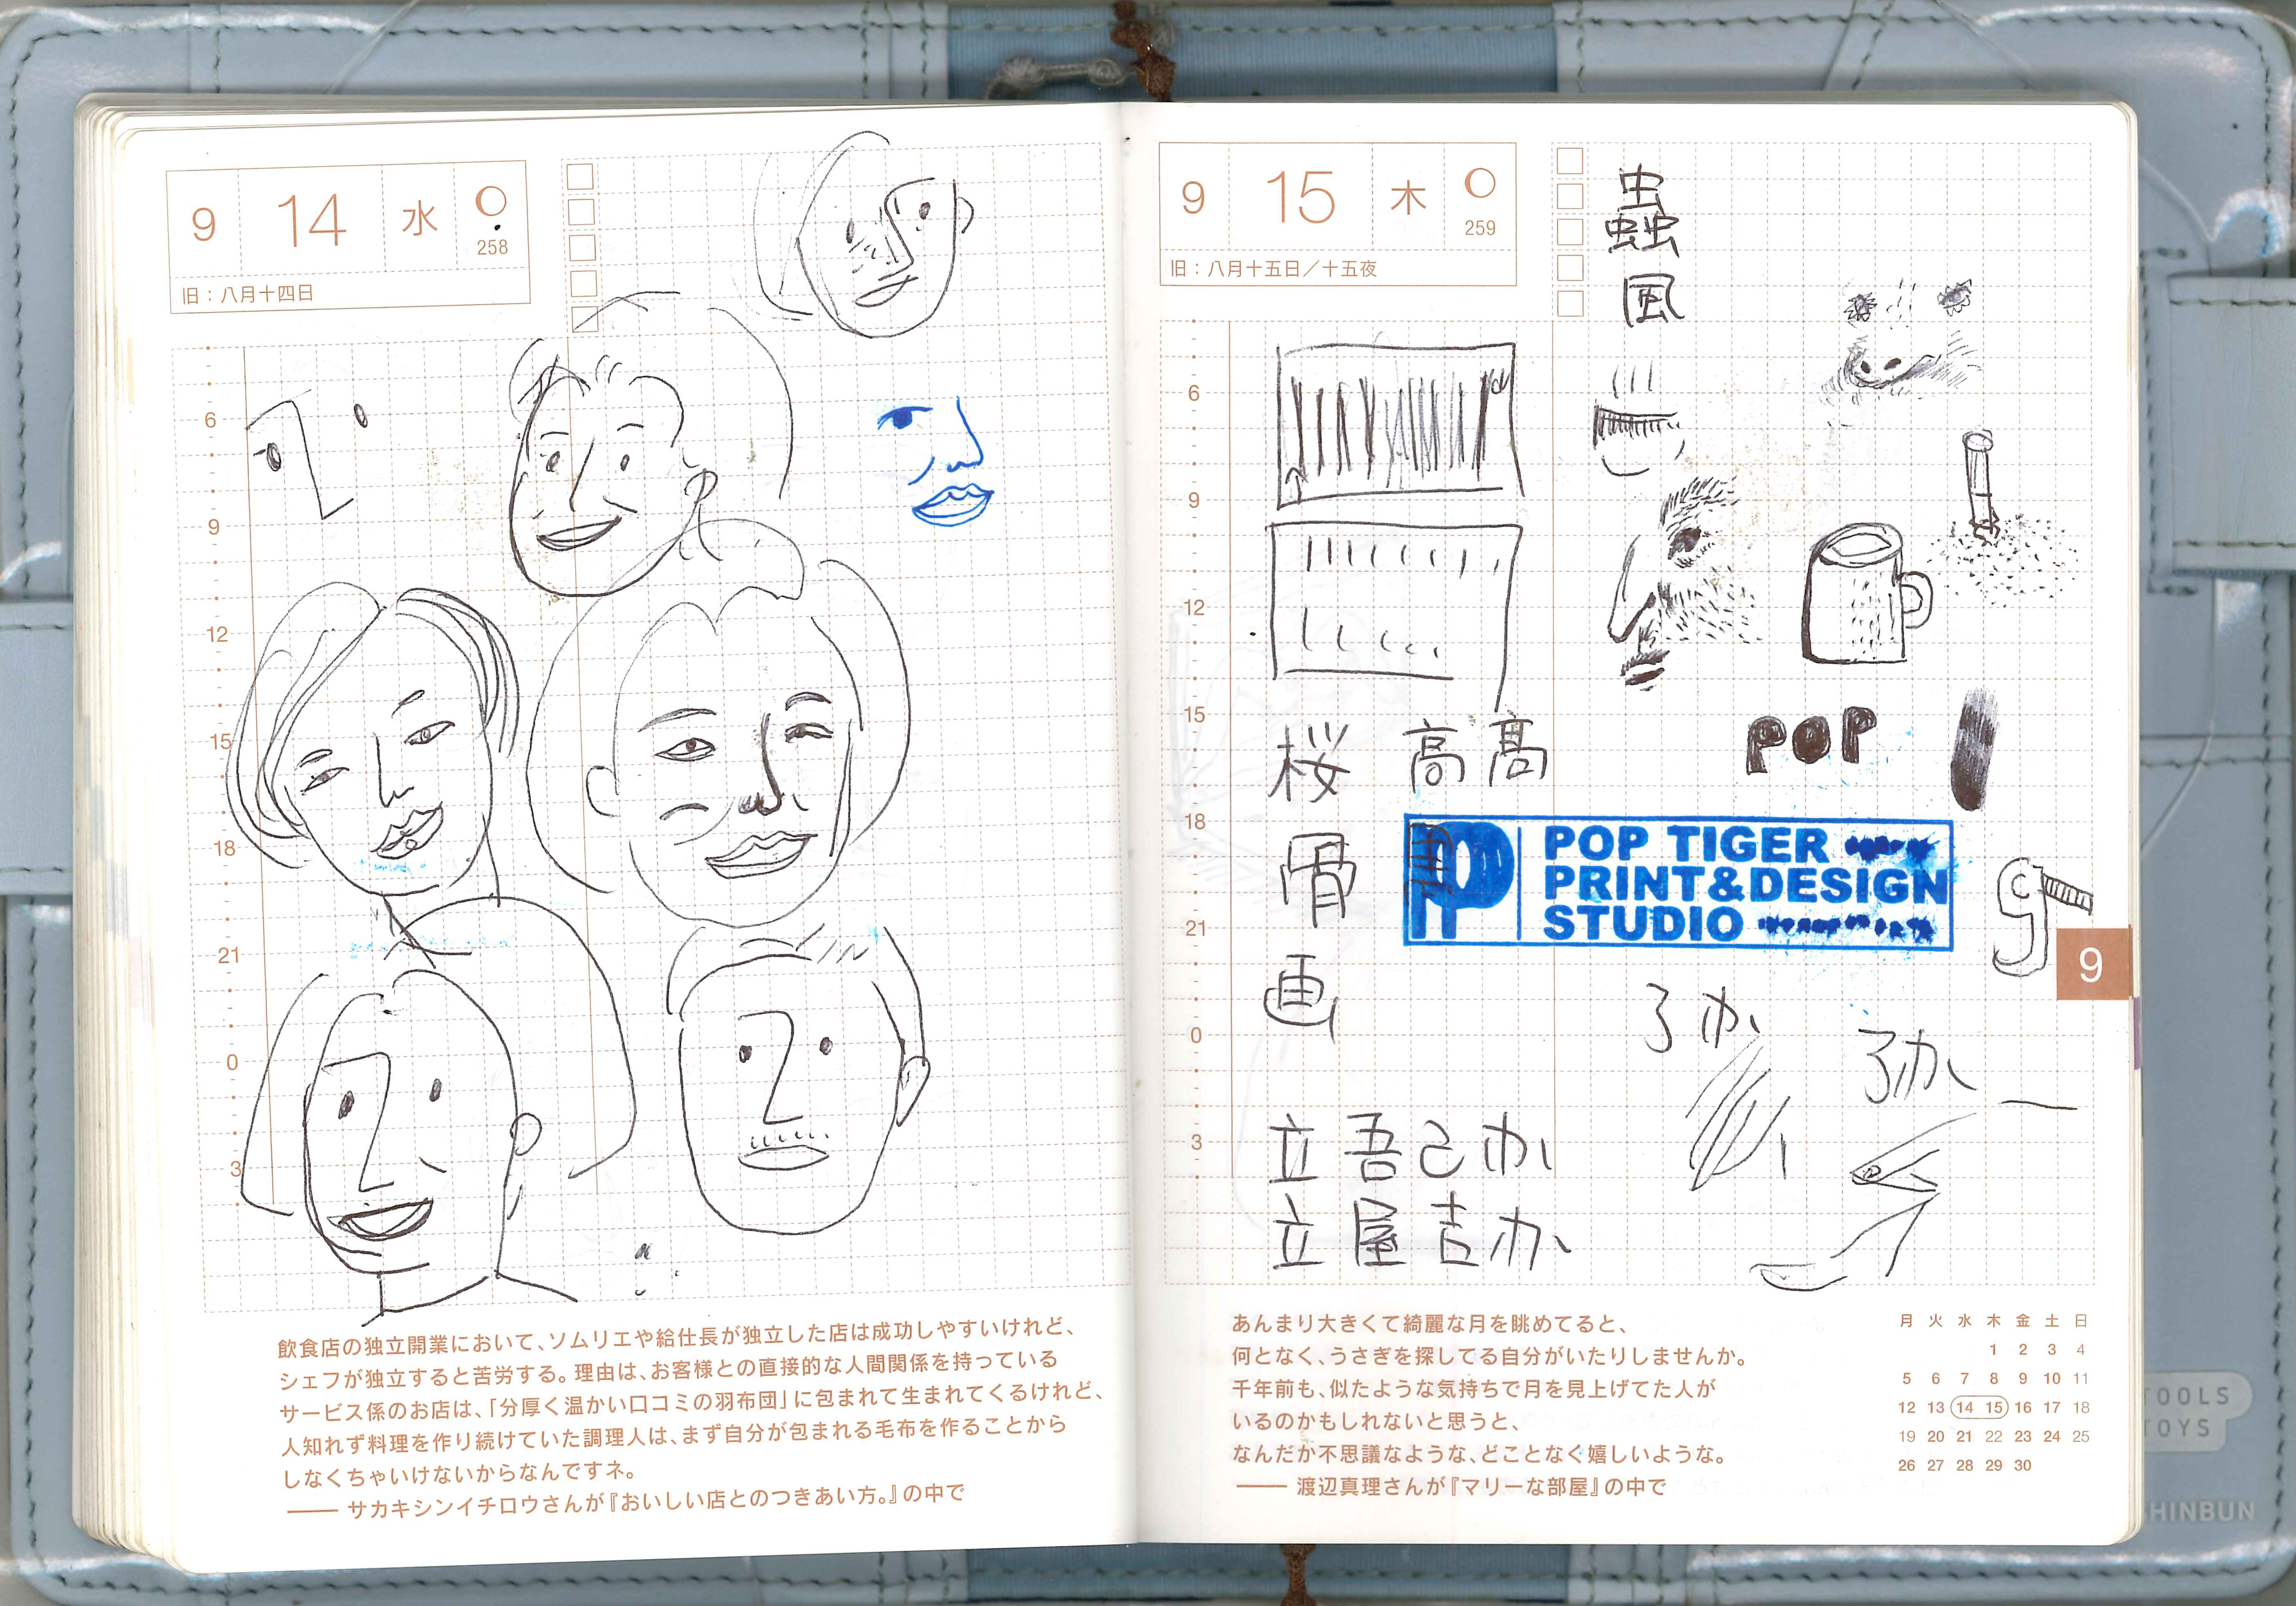 9 14 水
258
旧：八月十四日
6
9
12
15
18
21
0
3
飲食店の独立開業において、ソムリエや給仕長が独立した店は成功しやすいけれど、
シェフが独立すると苦労する。理由は、お客様との直接的な人間関係を持っている
サービス係のお店は、「分厚く温かい口コミの羽布団」に包まれて生まれてくるけれど、
人知れず料理を作り続けていた調理人は、まず自分が包まれる毛布を作ることから
しなくちゃいけないからなんですネ。
―― サカキシンイチロウさんが『おいしい店とのつきあい方。』の中で
9 15 木
259
旧：八月十五日／十五夜
虫
虫虫
風
6
9
12
15
18
21
0
3
POP
桜 高 髙
骨
画
POP TIGER
PRINT&DESIGN
STUDIO
g
9
か
か
立 吾 己 か
立 屋 吉 か
あんまり大きくて綺麗な月を眺めてると、
何となく、うさぎを探してる自分がいたりしませんか。
千年前も、似たような気持ちで月を見上げてた人が
いるのかもしれないと思うと、
なんだか不思議なような、どことなく嬉しいような。
―― 渡辺真理さんが『マリーな部屋』の中で
月 火 水 木 金 土 日
1 2 3 4
5 6 7 8 9 10 11
12 13 14 15 16 17 18
19 20 21 22 23 24 25
26 27 28 29 30
TOOLS
TOYS
SHINBUN